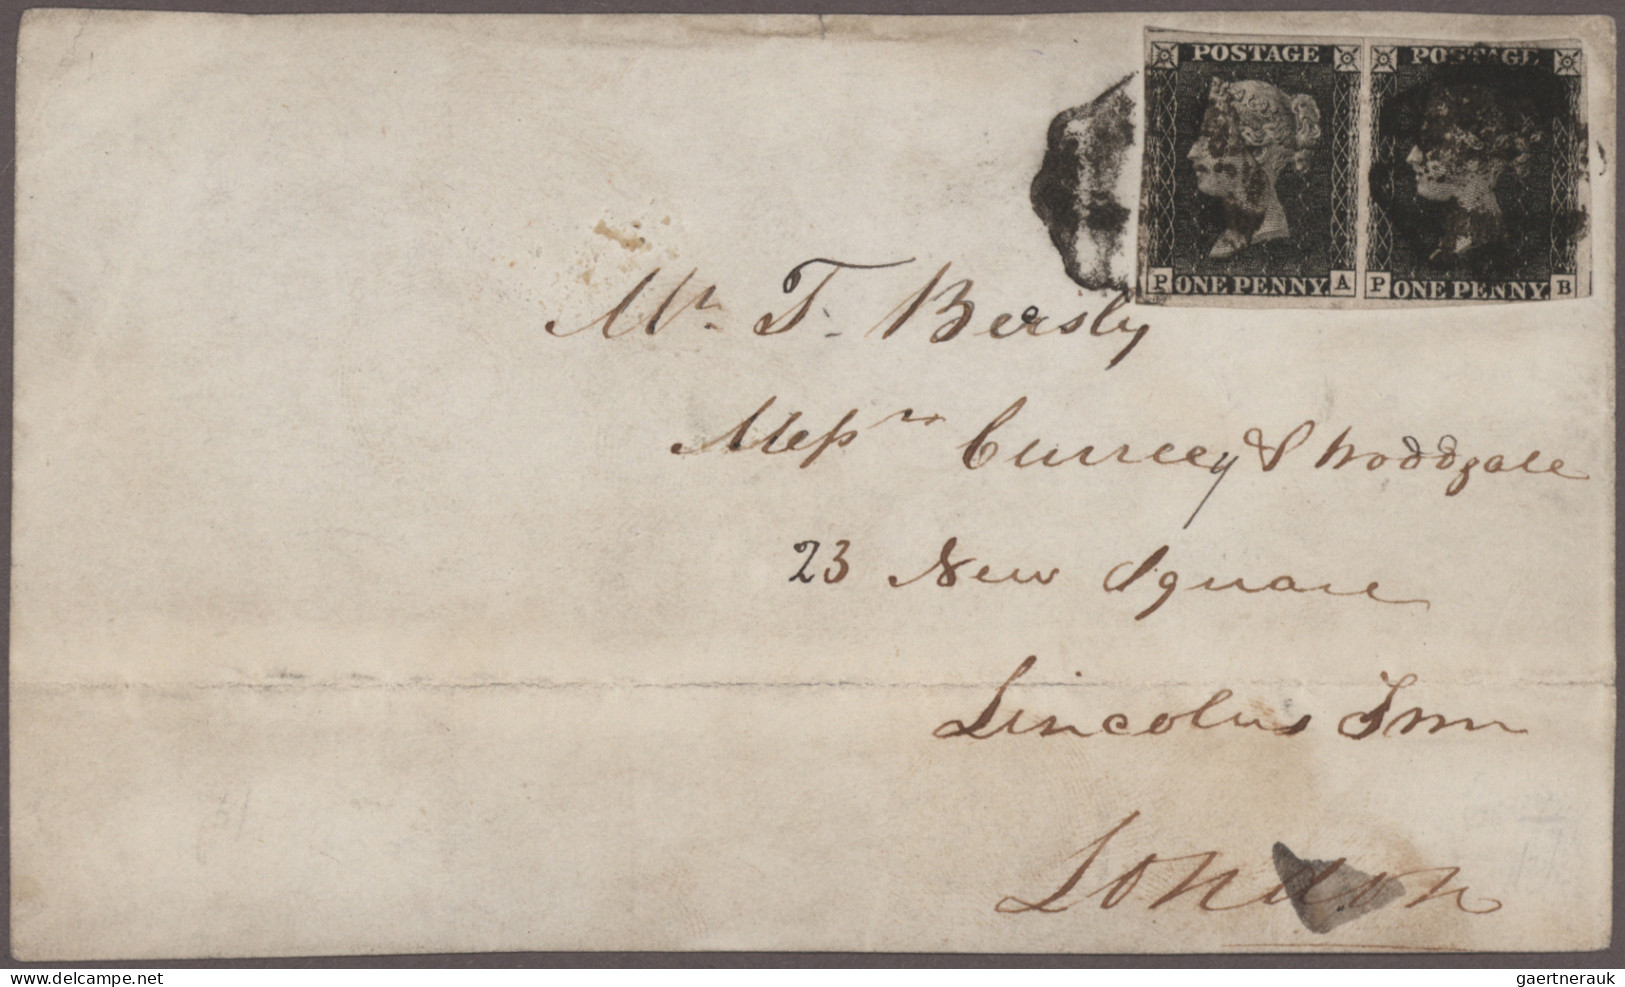 POSTAGE POSTAGE
P ONE PENNY. A P ONE PENNY. B
Mr. T. Bersly
Messrs Currey & Woodgate
23 New Square
Lincolns Inn
London
www.delcampe.net
gaertnerauk